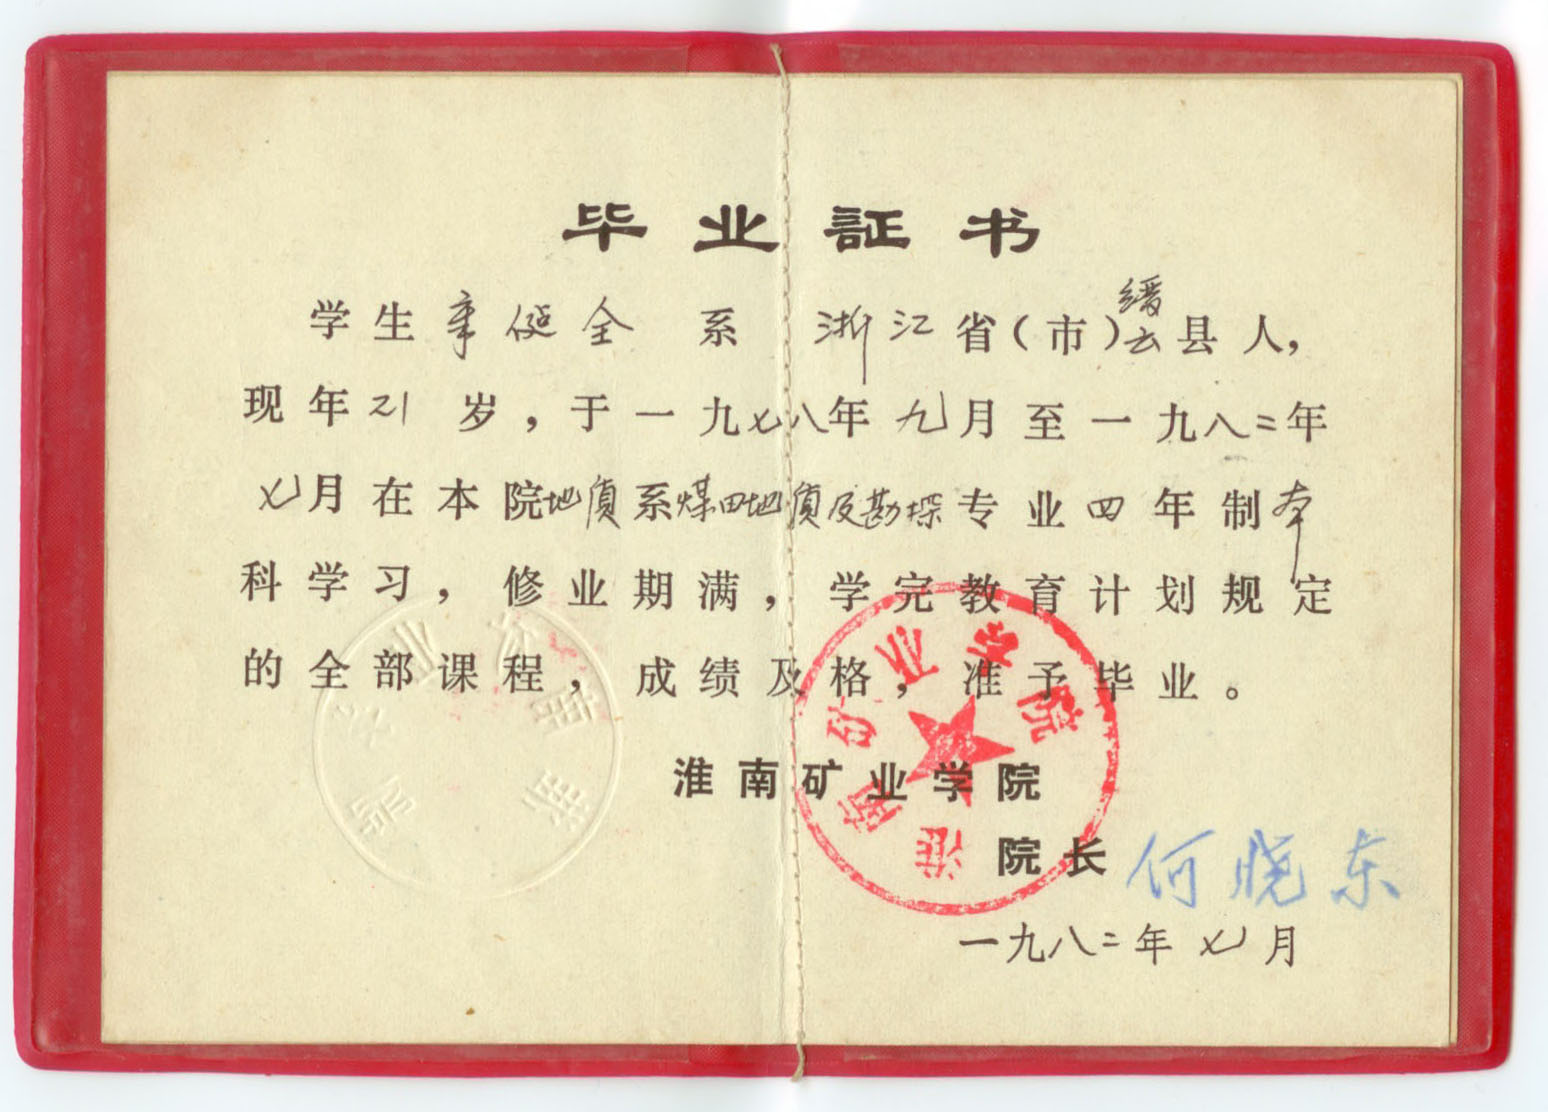 毕业証书
学生章健全系浙江省(市)缙云县人,
现年21岁,于一九七八年九月至一九八二年
七月在本院地质系煤田地质及勘探专业四年制本
科学习,修业期满,学完教育计划规定
的全部课程,成绩及格,准予毕业。
淮南矿业学院
院长 何晓东
一九八二年七月
淮南矿业学院